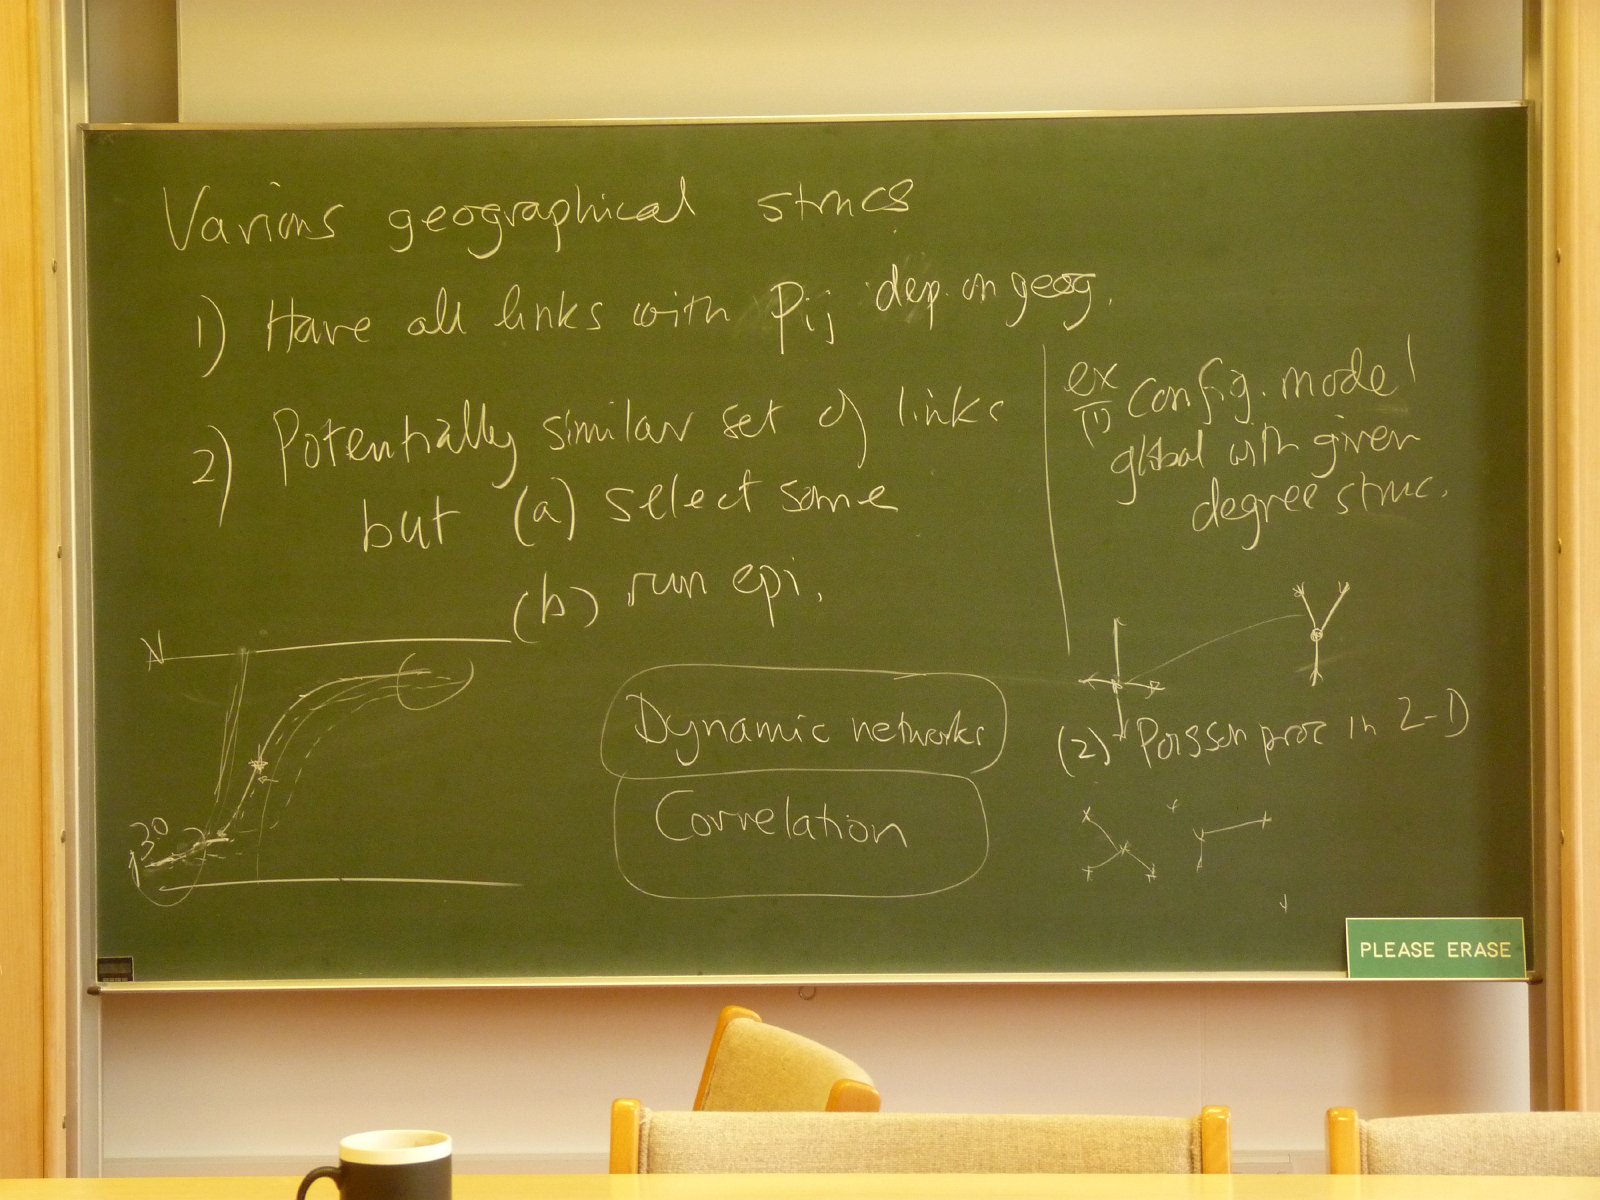 Various geographical strucs
1) Have all links with Pij dep. on geog.
2) Potentially similar set of links
but (a) select some
(b) run epi.
ex (1) config. model
global with given
degree struc.
N
Dynamic networks
(2) Poisson proc in 2-D
Correlation
PLEASE ERASE